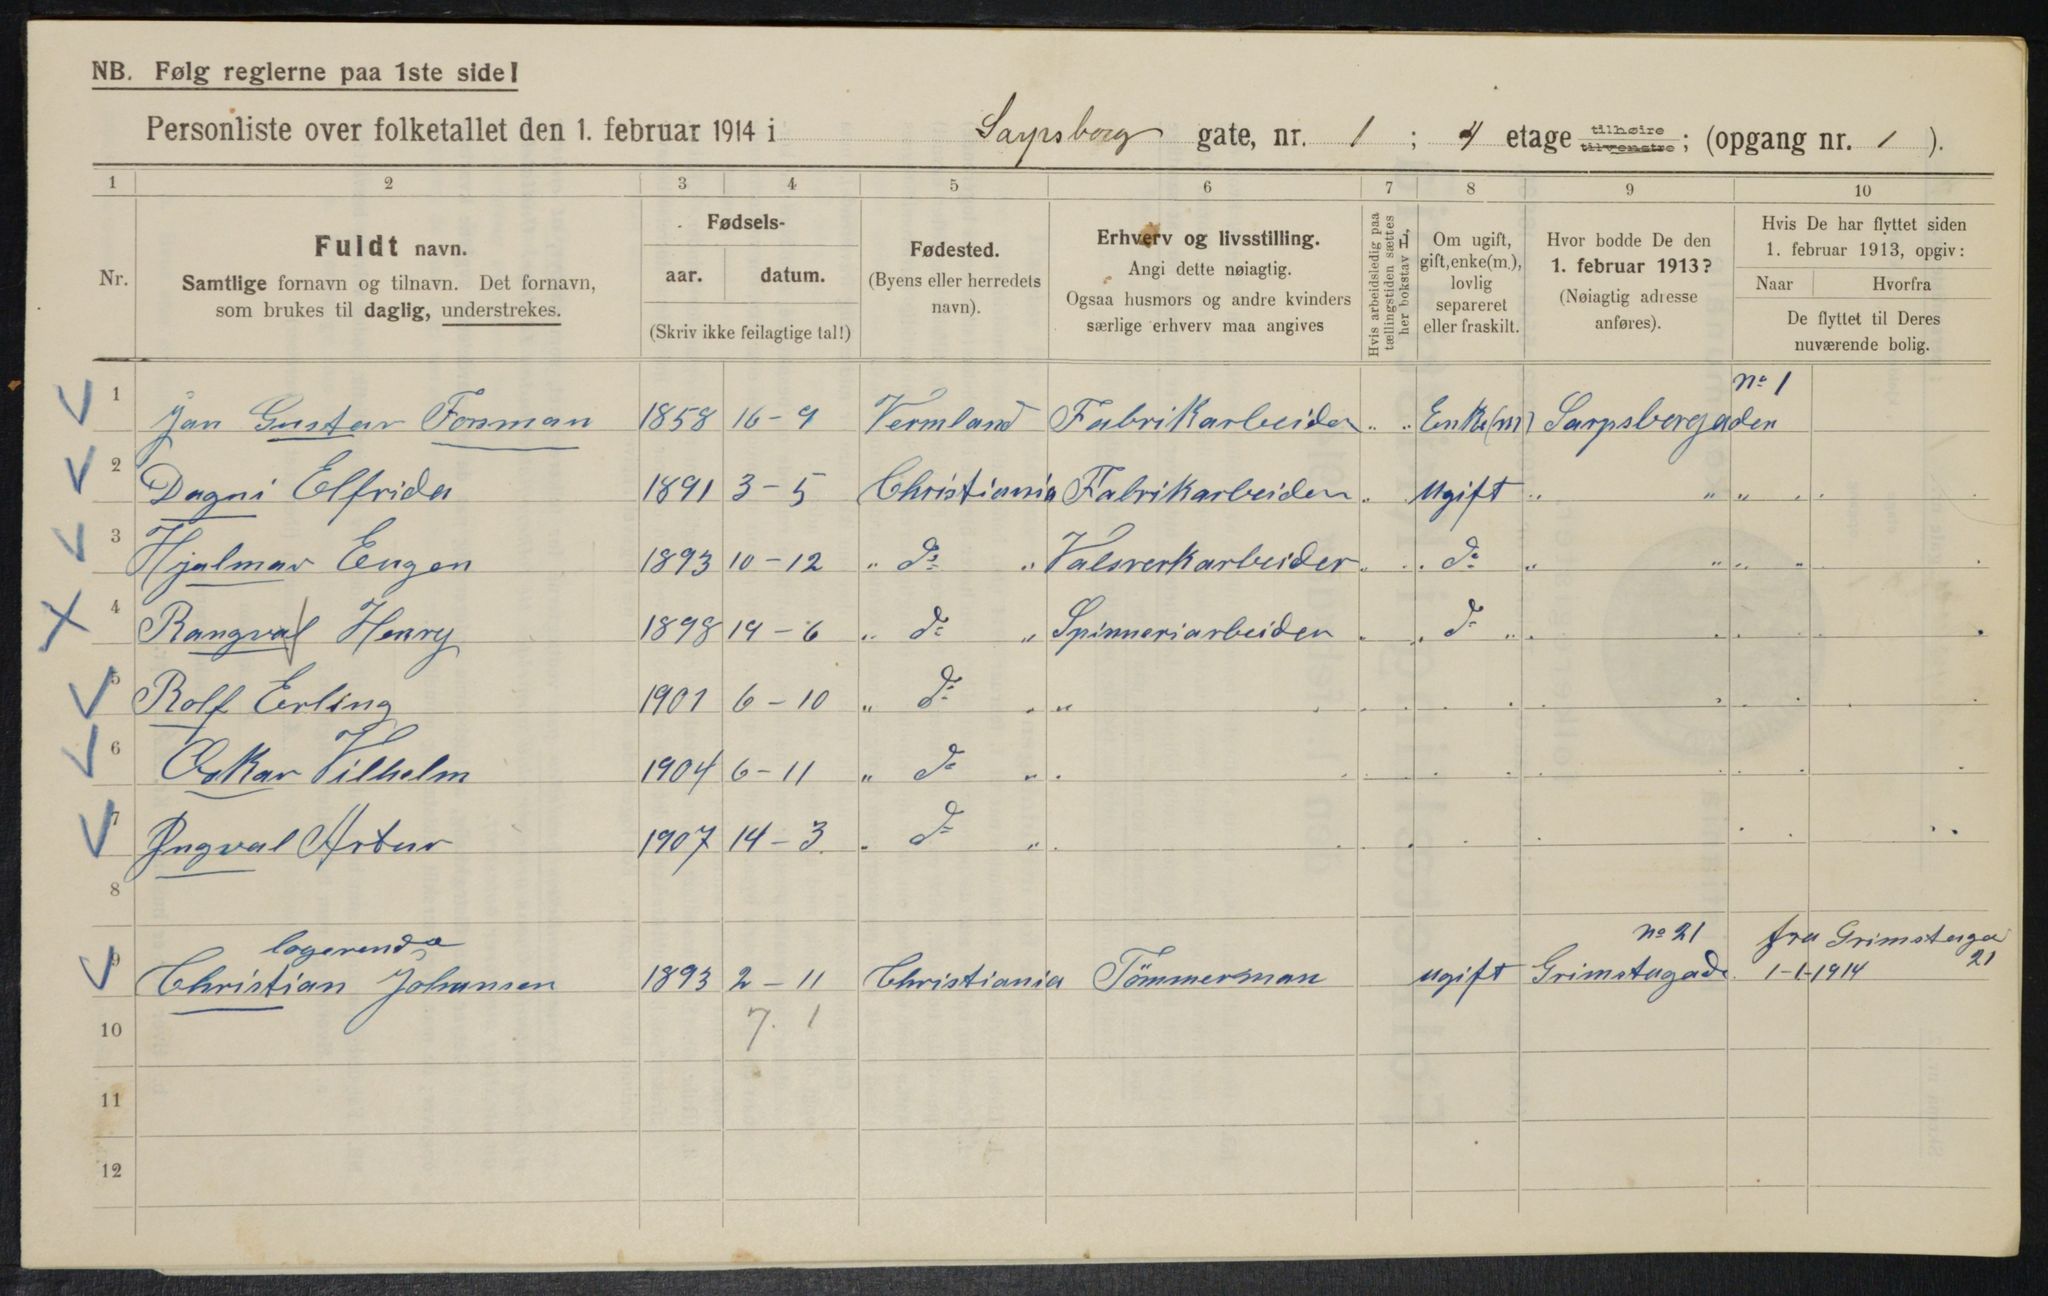 NB. Følg reglerne paa 1ste side!
Personliste over folketallet den 1. februar 1914 i Sarpsborg gate, nr. 1 ; 4 etage tilhøire tilvenstre ; (opgang nr. 1 ).
1 2 3 4 5 6 7 8 9 10
Nr.
Fuldt navn.
Samtlige fornavn og tilnavn. Det fornavn,
som brukes til daglig, understrekes.
Fødsels-
aar. datum.
(Skriv ikke feilagtige tal!)
Fødested.
(Byens eller herredets
navn).
Erhverv og livsstilling.
Angi dette nøiagtig.
Ogsaa husmors og andre kvinders
særlige erhverv maa angives
Hvis arbeidsledig paa
tællingstiden sættes
her bokstav H,
Om ugift,
gift, enke(m.),
lovlig
separeret
eller fraskilt.
Hvor bodde De den
1. februar 1913?
(Nøiagtig adresse
anføres).
Hvis De har flyttet siden
1. februar 1913, opgiv:
Naar Hvorfra
De flyttet til Deres
nuværende bolig.
1 Jan Gustav Forsman 1858 16-9 Vermland Fabrikarbeider " " Enke(m) Sarpsborgaden no 1
2 Dagni Elfrida 1891 3-5 Christiania Fabrikarbeider " Ugift " " " " "
3 Hjalmar Eugen 1893 10-12 " do " Valsverkarbeider " " do " " " "
4 Rangval Henry 1898 19-6 " do " Spinneriarbeider " " do "
5 Rolf Erling 1901 6-10 " do " "
6 Oskar Vilhelm 1904 6-11 " do " "
7 Yngval Artur 1907 14-3 " do " "
8
logerende
9 Christian Johansen 1893 2-11 Christiania Tömmerman ugift Grimstagade no 21 1-1-1914 fra Grimstaga 21
10 7. 1
11
12